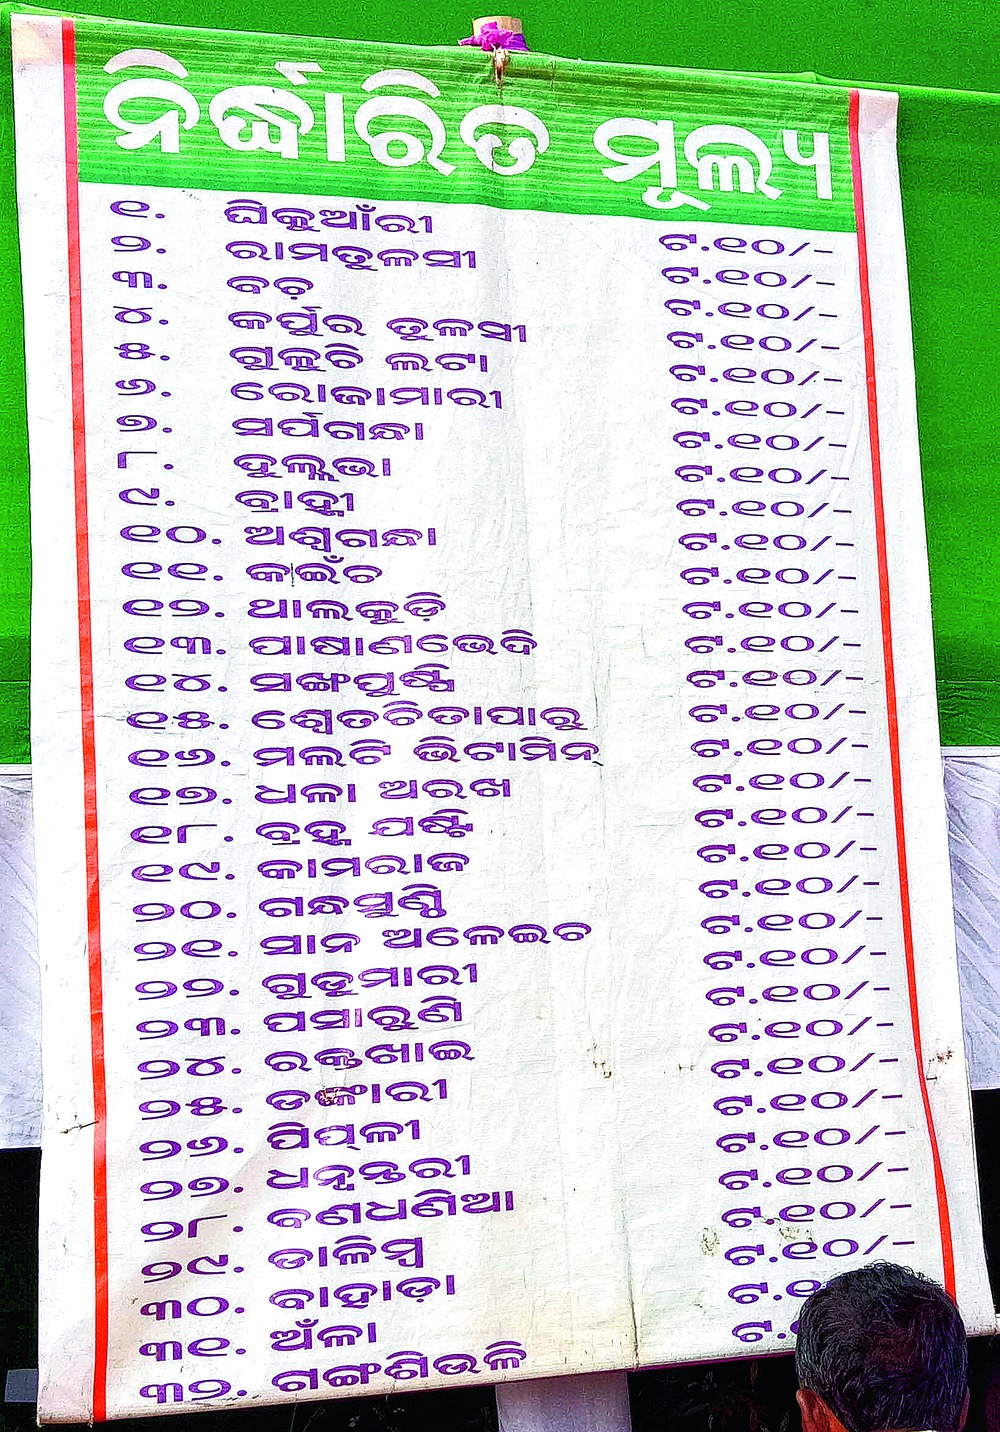 ନିର୍ଦ୍ଧାରିତ ମୂଲ୍ୟ
୧. ଘିକୁଆଁରୀ ଟ.୧୦/-
୨. ରାମତୁଳସୀ ଟ.୧୦/-
୩. ବଚ଼ ଟ.୧୦/-
୪. କର୍ପୁର ତୁଳସୀ ଟ.୧୦/-
୫. ଗୁଲୁଚି ଲଟା ଟ.୧୦/-
୬. ରୋଜାମାରୀ ଟ.୧୦/-
୭. ସର୍ପଗନ୍ଧା ଟ.୧୦/-
୮. ହୁଲ୍ଲଭା ଟ.୧୦/-
୯. ବ୍ରାହ୍ମୀ ଟ.୧୦/-
୧୦. ଅଶ୍ୱଗନ୍ଧା ଟ.୧୦/-
୧୧. କଇଁଚ ଟ.୧୦/-
୧୨. ଥାଲକୁଡ଼ି ଟ.୧୦/-
୧୩. ପାଷାଣଭେଦି ଟ.୧୦/-
୧୪. ସଙ୍ଖପୁଷ୍ପି ଟ.୧୦/-
୧୫. ଶ୍ୱେତଚିତାପାରୁ ଟ.୧୦/-
୧୬. ମଲଟି ଭିଟାମିନ୍ ଟ.୧୦/-
୧୭. ଧଳା ଅରଖ ଟ.୧୦/-
୧୮. ବ୍ରହ୍ମ ଯଷ୍ଟି ଟ.୧୦/-
୧୯. କାମରାଜ ଟ.୧୦/-
୨୦. ଗନ୍ଧସୁଣ୍ଠି ଟ.୧୦/-
୨୧. ସାନ ଅଳେଇଚ ଟ.୧୦/-
୨୨. ଗୁଡୁମାରୀ ଟ.୧୦/-
୨୩. ପସାରୁଣି ଟ.୧୦/-
୨୪. ରକ୍ତଖାଇ ଟ.୧୦/-
୨୫. ଡଙ୍କାରୀ ଟ.୧୦/-
୨୬. ପିପ୍ଳୀ ଟ.୧୦/-
୨୭. ଧନ୍ୱନ୍ତରୀ ଟ.୧୦/-
୨୮. ବଣଧଣିଆ ଟ.୧୦/-
୨୯. ଡାଳିମ୍ବ ଟ.୧୦/-
୩୦. ବାହାଡ଼ା ଟ.୧୦/-
୩୧. ଅଁଳା ଟ.୧
୩୨. ଗଙ୍ଗଶିଉଳି ଟ.